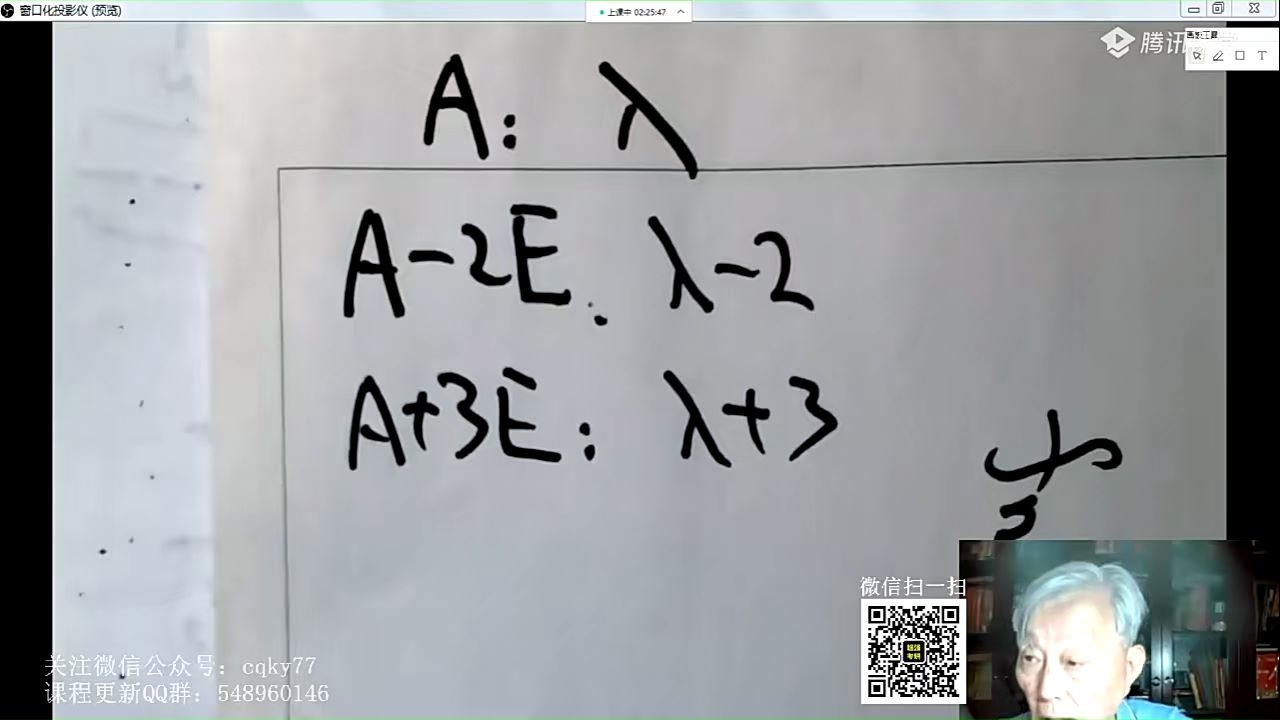 窗口化投影仪 (预览)
上课中 02:25:47
腾讯
画板工具
T
A: λ
A-2E: λ-2
A+3E: λ+3
微信扫一扫
关注微信公众号：cqky77
课程更新QQ群：548960146